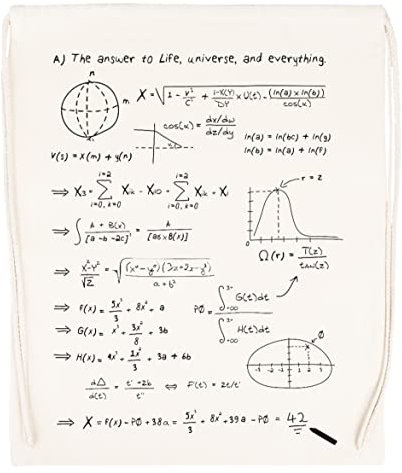 A) The answer to Life, universe, and everything.
n
m
X = √(1 - v²/c² + (i-X(Y))/DY × U(t) - (ln(a) × ln(b))/cos(x))
cos(x) = dx/dw / dz/dy
ln(a) = ln(bc) + ln(g)
ln(b) = ln(a) + ln(F)
V(s) = X(m) + y(n)
⇒ X₃ = i=2 Σ i=0, k=0 Xik - Xi0 = i=2 Σ i=0, k=0 Xik - Xi
r = 2
⇒ ∫ A + B(x) / [a - b - 2c]' = A / [as × B(x)]
Ω(r) = T(z) / tan(z)
⇒ X²-Y² / √2 = √((x² - y²)(3x+2x-y³) / a + b²)
⇒ F(x) = 5x³/3 + 8x² + a
PØ = ∫ 3- -∞ G(t)dt / ∫ 3- -∞ H(t)dt
⇒ G(x) = x³ + 3x²/8 + 3b
⇒ H(x) = 4x³ + 2x²/3 + 3a + 6b
Ø
-3 -2 -1 1 2 3
dΔ / d(t) = t' + 2b / t'' ⇔ F(t) = 2t/t'
⇒ X = F(x) - PØ + 38a = 5x³/3 + 8x² + 39a - PØ = 42